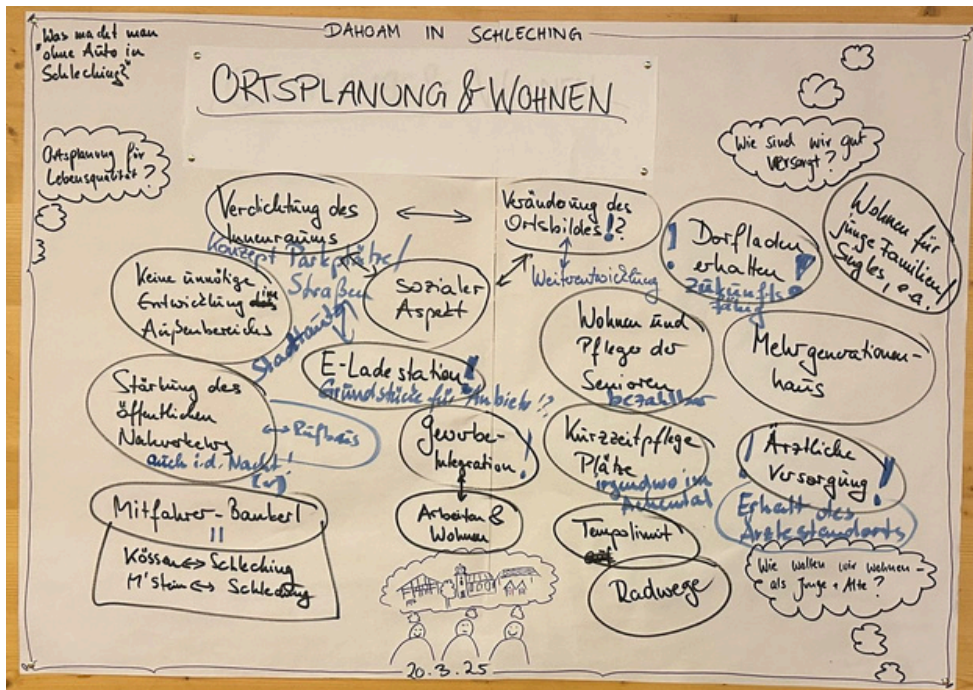 Was macht man
"ohne Auto in
Schleching?"
DAHOAM IN SCHLECHING
ORTSPLANUNG & WOHNEN
Ortsplanung für
Lebensqualität?
Wie sind wir gut
versorgt?
Verdichtung des
Innenraums
Veränderung des
Ortsbildes!?
Weiterentwicklung
Dorfladen
erhalten
zukunfts-
fähig
Wohnen für
junge Familien/
Singles, e.a.
Konzept Parkplätze/
Straßen
Keine unnötige
Entwicklung
Außenbereichs
sozialer
Aspekt
Wohnen und
Pflege der
Senioren
bezahlbar
Mehrgenerationen-
haus
E-Ladestation!
Grundstücke für Anbieter!?
Stärkung des
öffentlichen
Nahverkehrs
auch i.d. Nacht!
Rufbus
Gewerbe-
Integration!
Kurzzeitpflege
Plätze
irgendwo im
Achental
! Ärztliche
Versorgung!
Erhalt des
Arztestandorts
Mitfahrer-Bankerl
=
Kössen ↔ Schleching
M'Stein ↔ Schleching
Arbeiten &
Wohnen
Tempolimit
Radwege
Wie wollen wir wohnen -
als Junge + Alte?
20.3.25